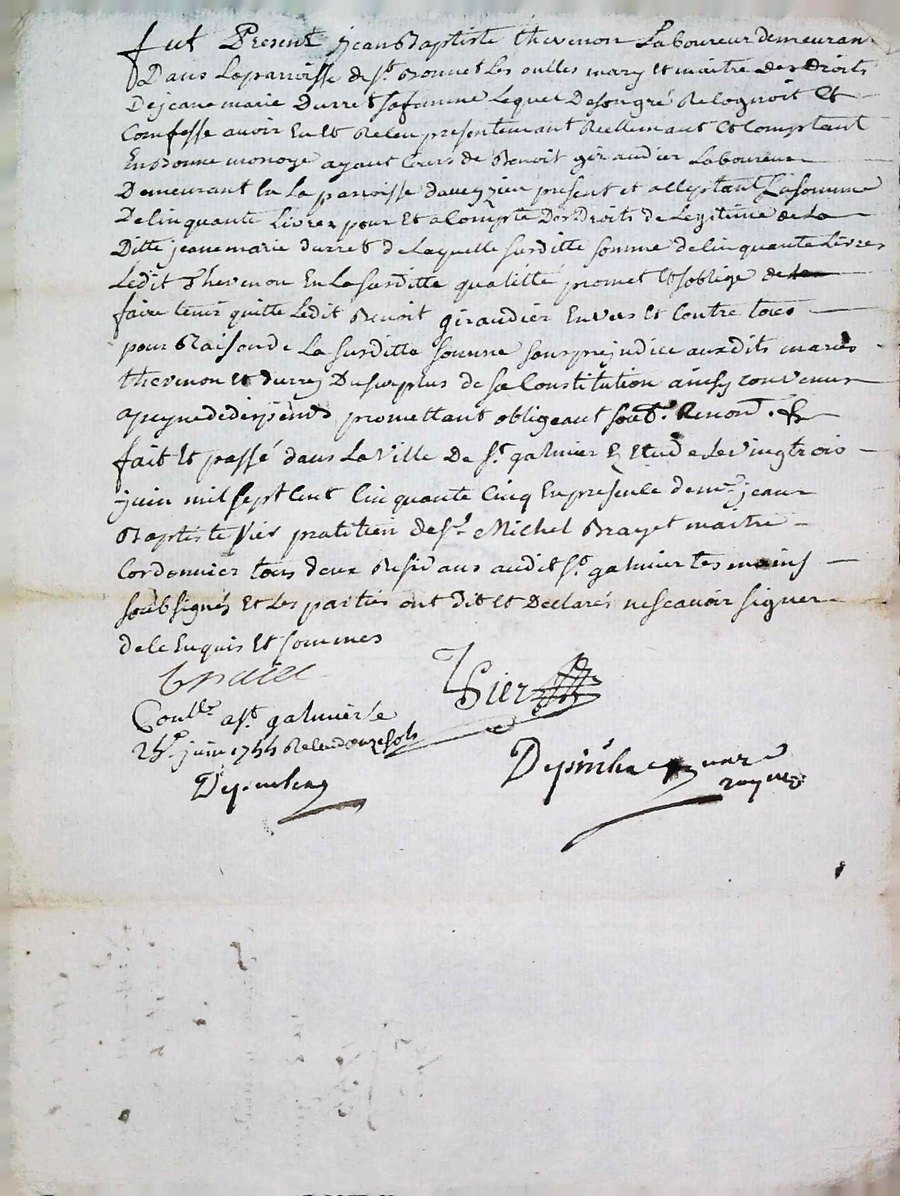 fut Present jean Baptiste thevenon Laboureur demeurant
Dans Laparroisse de st. Bonnet Les oulles mary et maitre des Droits
De jeane marie Durret safemme Lequel Desongré Recognoit Et
Comfesse avoir Eu et Receu presentement Reellemant Et Comptant
En Bonne monoye ayant Cours de Benoit giraudier Laboureur
Demeurant En La parroisse daveyzieu present et acceptant La somme
De Cinquante Livres pour Et a Compte Des Droits de Legitime de La
Ditte jeane marie durret de Laquelle susditte somme de Cinquante Livres
Ledit Thevenon En La susditte qualitté promet Et soblige de
faire tenir quitte Ledit Benoit giraudier Envers Et Contre tous
pour Raison de La susditte somme sans prejudice auxdits mariés
thevenon Et durret Du surplus de sa Constitution ainsy convenus
a peyne de depends promettant obligeant soub. Renon. &
fait Et passé dans La Ville De st. galmier Etude Le vingtrois
juin mil sept Cent Cinquante Cinq En presence de me. jean
Baptiste Pier pratitien de st. Michel Brayet maitre
Cordonnier tous deux Residans audit st. galmier tesmoins
soubsignés Et Les parties ont dit et Declarés ne scavoir signer
de ce Enquis Et sommés
Pier
Conllé. a st. galmier Le
juin 1755 Receu douze sols